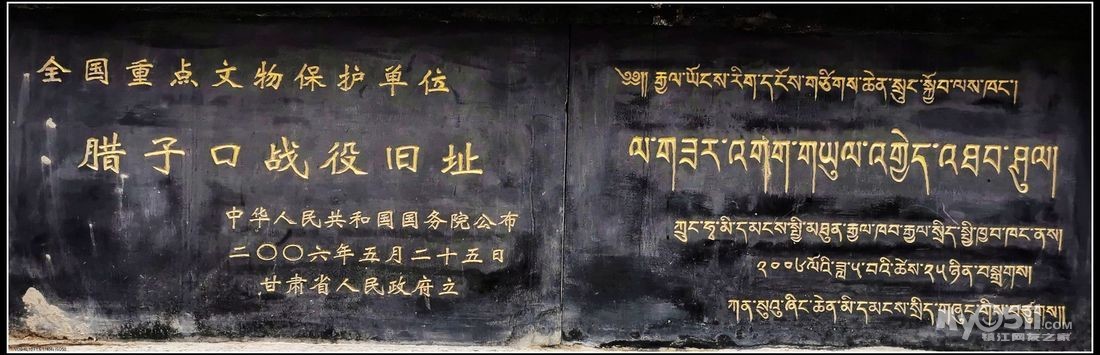 全国重点文物保护单位
腊子口战役旧址
中华人民共和国国务院公布
二〇〇六年五月二十五日
甘肃省人民政府立
༄༅།། རྒྱལ་ཡོངས་རིག་དངོས་གཙིགས་ཆེན་སྲུང་སྐྱོབ་ལས་ཁང་།
ལ་གཟར་འགག་གཡུལ་འགྱེད་འཐབ་ཤུལ།
ཀྲུང་ཧྭ་མི་དམངས་སྤྱི་མཐུན་རྒྱལ་ཁབ་རྒྱལ་སྲིད་སྤྱི་ཁྱབ་ཁང་ནས།
༢༠༠༦ལོའི་ཟླ་༥་བའི་ཚེས་༢༥ཉིན་བསྒྲགས།
ཀན་སུའུ་ཞིང་ཆེན་མི་དམངས་སྲིད་གཞུང་གིས་བཙུགས།།
.com
镇江网友之家